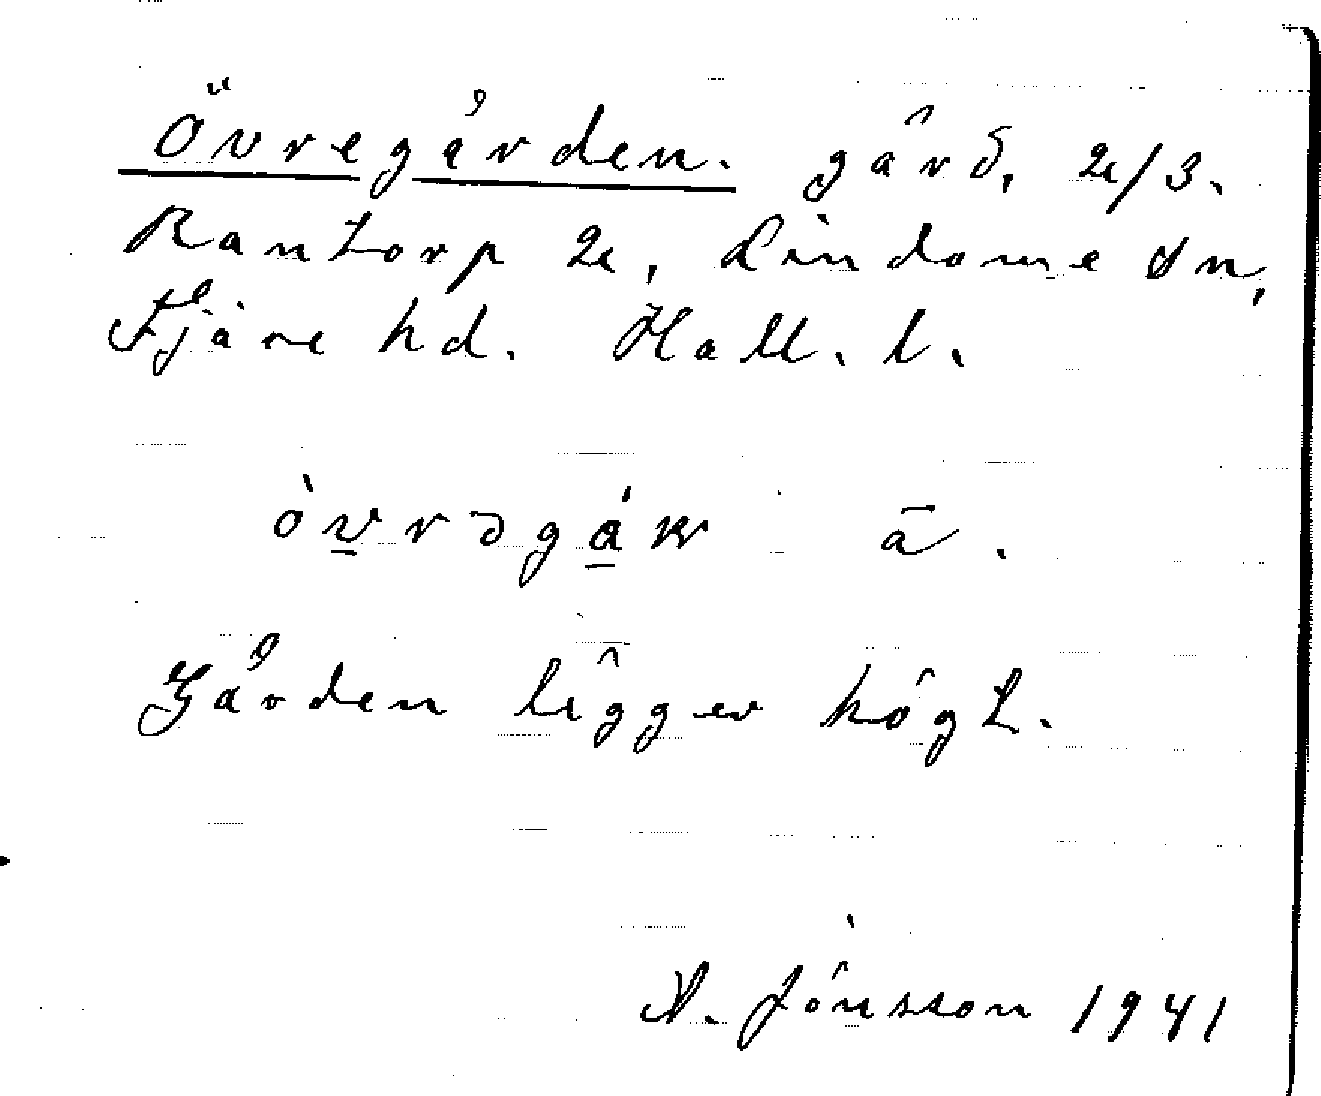 Övregården. gård, 2/3.
Rantorp 2, Lindome sn,
Fjäre hd. Hall. l.
òvrəgáɳ ā.
Gården ligger högt.
A. Jönsson 1941